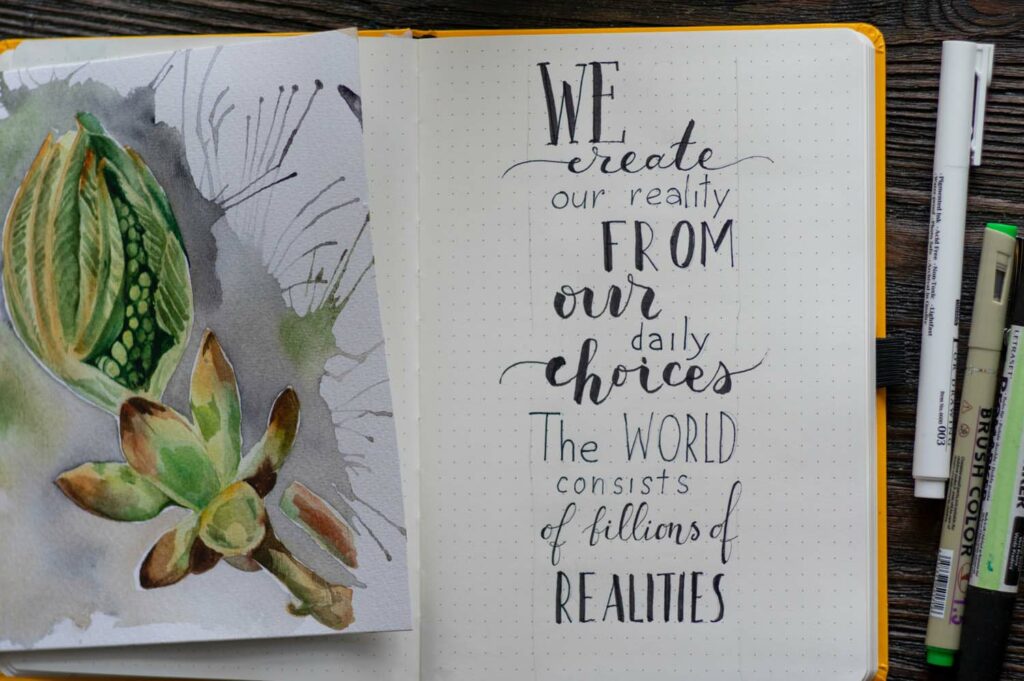 WE
create
our reality
FROM
our
daily
choices
The WORLD
consists
of billions of
REALITIES
Pigmented Ink · Acid Free · Non-Toxic · Lightfast
003
LETRASET
BRUSH COLOR